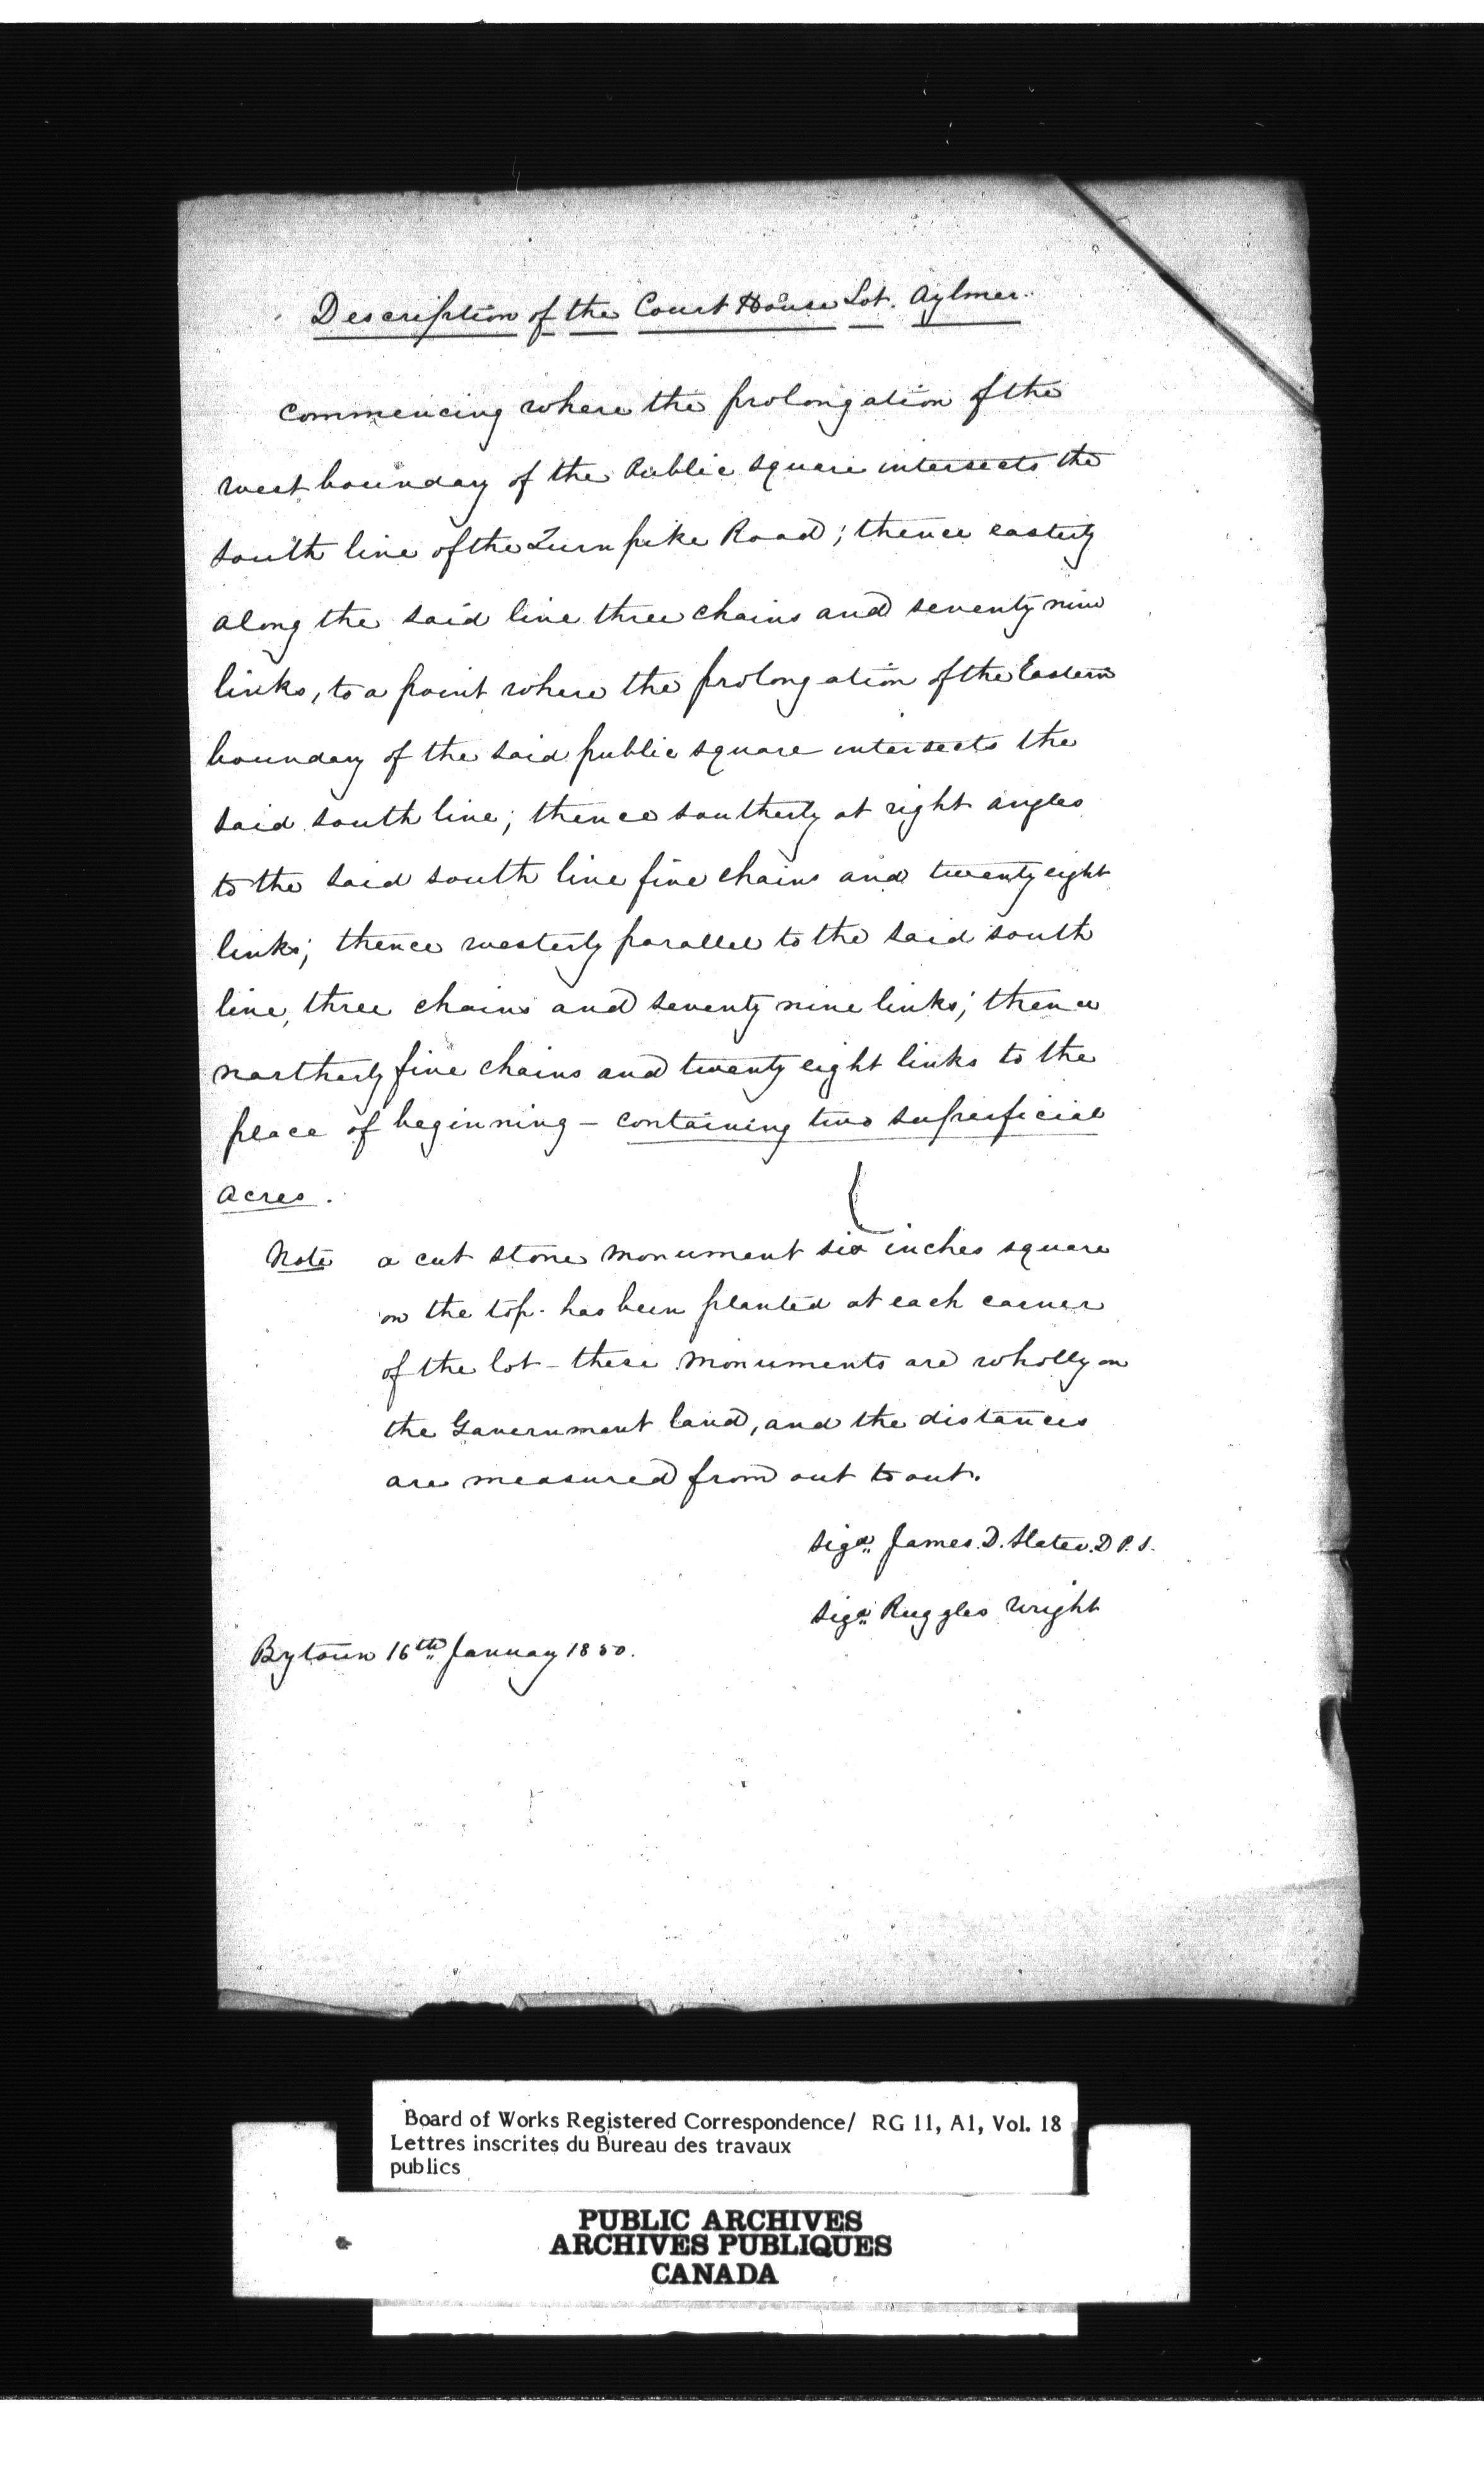 Description of the Court House Lot. Aylmer.
Commencing where the prolongation of the
west boundary of the Public square intersects the
south line of the Turnpike Road; thence easterly
along the said line three chains and seventy nine
links, to a point where the prolongation of the Eastern
boundary of the said public square intersects the
said south line; thence southerly at right angles
to the said south line five chains and twenty eight
links; thence westerly parallel to the said south
line, three chains and seventy nine links; thence
northerly five chains and twenty eight links to the
place of beginning - containing two superficial
acres.
Note a cut stone monument six inches square
on the top. has been planted at each corner
of the lot - these monuments are wholly on
the Government land, and the distances
are measured from out to out.
Sigd. James. D. Slater. D P. S.
Sigd. Ruggles Wright
Bytown 16th January 1850.
Board of Works Registered Correspondence/ RG 11, A1, Vol. 18
Lettres inscrites du Bureau des travaux
publics
PUBLIC ARCHIVES
ARCHIVES PUBLIQUES
CANADA